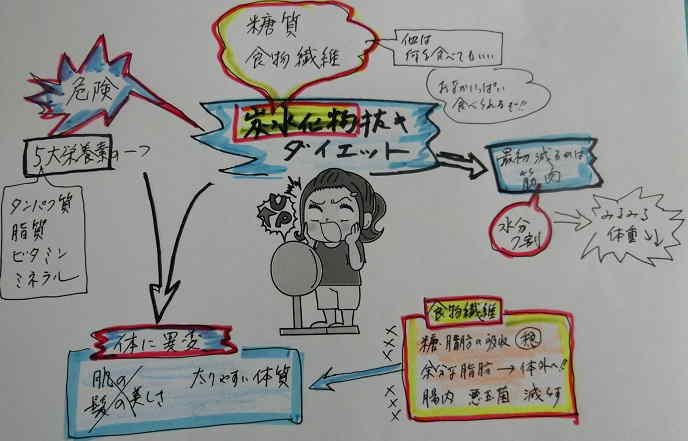 糖質
食物繊維
他は
何を食べてもいい
おなかいっぱい
食べられるぞ!!
危険
炭水化物抜き
ダイエット
5大栄養素の一つ
タンパク質
脂質
ビタミン
ミネラル
最初に減るのは
筋肉
水分
7割
みるみる
体重↓↓
体に異変
肌の
髪の美しさ
太りやすい体質
食物繊維
糖 脂肪の吸収
余分な脂肪 → 体外へ!!
腸内 悪玉菌 減らす